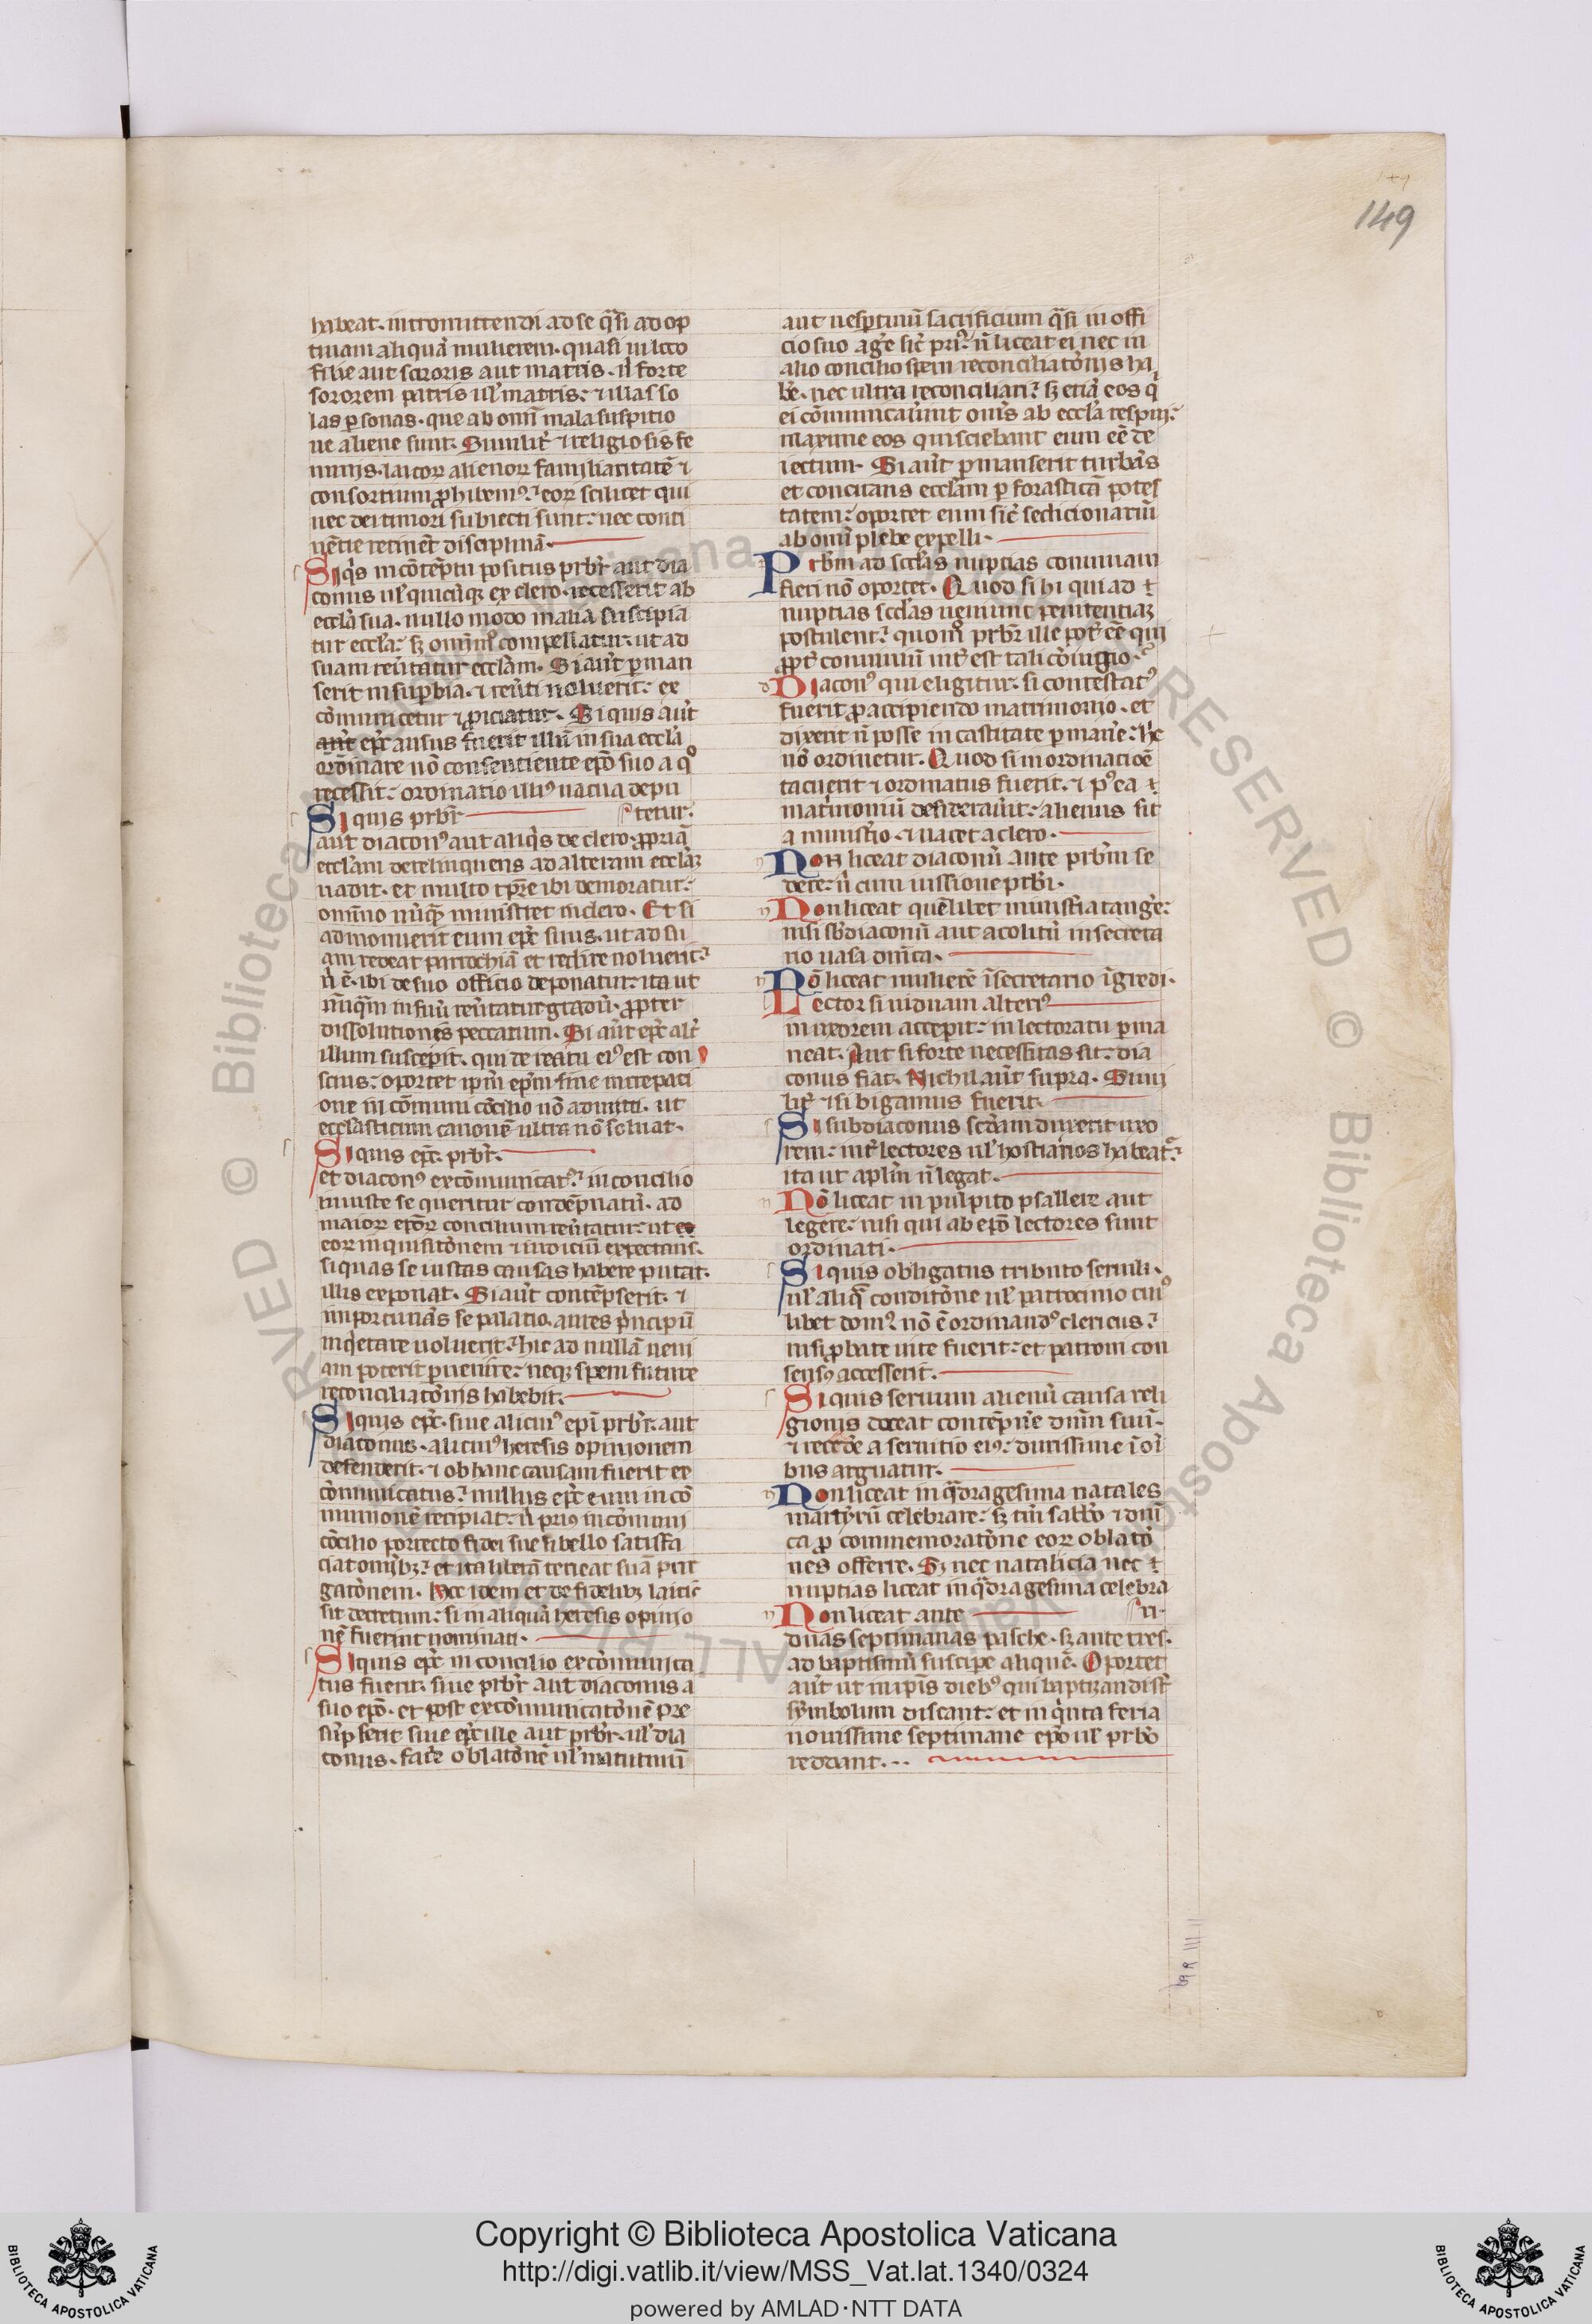 149
habeat. intromittendi ad se q̃si ad op
tiuam aliquã mulierem. quasi in loco
filie aut sororis aut matris. ñ forte
sororem patris ul' matris: ⁊ illas so
las ꝑsonas. que ab omĩ mala suspitio
ne aliene sunt. Similit̃ ⁊ religiosis fe
minis. laicoꝝ alienoꝝ familiaritatẽ ⁊
consortium ꝓhibemꝰ: eoꝝ scilicet qui
nec dei timori subiecti sunt: nec conti
nẽtie retinẽt disciplinã.
Si q̃s in cõtẽptu positus prb̃r aut dia
conus ul' quicũqꝫ ex clero. recesserit ab
eccl̃a sua. nullo modo in alia suscipia
tur eccl̃a: sꝫ omĩno compellatur. ut ad
suam reũtatur eccl̃am. Si aũt ꝑman
serit in suꝑbia. ⁊ reũti noluerit: ex
cõmunicetur ⁊ ꝓiciatur. Si quis aũt
aũt ep̃c ausus fuerit illũ in sua eccl̃a
ordinare nõ consentiente ep̃o suo a qͦ
recessit: ordinatio illiꝰ uacua depu
Si quis prb̃r tetur.
aut diaconꝰ aut aliq̃s de clero. ꝓpriã
eccl̃am derelinquens ad alteram eccl̃aꝫ
uadit. et multo tp̃re ibi demoratur:
omĩno nũqꝫ ministret in clero. Et si
admonuerit eum ep̃c suus. ut ad su
am redeat parrochiã et redire noluerit:
ñ ẽ. ibi de suo officio deponatur: ita ut
nũq̃m in suũ reũtatur gradũ. ꝓpter
dissolutionis peccatum. Si aũt ep̃c alt̃
illum suscepit. qui de reatu eiꝰ est con
scius: oportet ip̃m ep̃m sine increpati
one in cõmuni cõcilio nõ admitti. ut
eccl̃asticum canonẽ ultra nõ soluat.
Si quis ep̃c. prb̃r.
et diaconꝰ excõmunicatꝰ: in concilio
iniuste se queritur condẽpnatũ. ad
maioꝝ ep̃oꝝ concilium reũtatur: ut
eoꝝ inquisitõnem ⁊ iudiciũ expectans.
si quas se iustas causas habere putat.
illis exponat. Si aũt contẽpserit. ⁊
importunãs se palatio. antes p̃ncipũ
inq̃etare uoluerit: hic ad nullã ueni
am poterit ꝑuenire: neqꝫ spem future
reconciliatõnis habebit.
Si quis ep̃c. siue alicuiꝰ ep̃i prb̃r. aut
diaconus. alicuiꝰ heresis opinionem
defenderit. ⁊ ob hanc causam fuerit ex
cõmunicatus: nullus ep̃c eum in cõ
munionẽ recipiat: ñ priꝰ in cõmuni
cõcilio porrecto fidei sue libello satisfa
ciat omĩbꝫ: et ita liberã teneat suã pur
gatõnem. Hoc idem et de fidelibꝫ laicis
sit decretum: si in aliquã heresis opinio
nẽ fuerint nominati.
Si quis ep̃c in concilio excõmunica
tus fuerit. siue prb̃r aut diaconus a
suo ep̃o. et post excõmunicatõnẽ pre
sũpserit siue ep̃c ille aut prb̃r. ul' dia
conus. facẽ oblatõnẽ ul' matutinũ
aut uesptinũ sacrificium q̃si in offi
cio suo ageͤ sic̃ priꝰ: ñ liceat ei nec in
alio concilio spem reconciliatõnis ha
b̃e. nec ultra reconciliari: sꝫ etiã eos q̃
ei cõmunicaũint om̃s ab eccl̃a respui:
maxime eos qui sciebant eum eẽ de
iectum. Si aũt ꝑmanserit turbãs
et concitans eccl̃am ꝑ forasticã potes
tatem: oportet eum sic̃ sedicionariũ
ab omĩ plebe expelli.
Prb̃m ad scd̃as nuptias conuiuam
fieri nõ oportet. Quod si hi qui ad
nuptias scd̃as ueniunt penitentiaꝫ
postulent: quom̃ prb̃r ille pot̃ eẽ qui
ꝓpt̃ conuiuiũ int̃est tali cõiugio.
Diaconꝰ qui eligitur. si contestatꝰ
fuerit ꝓ accipiendo matrimonio. et
dixerit ñ posse in castitate ꝑmaneͤ: hic
nõ ordinetur. Quod si in ordinatiõe
tacuerit ⁊ ordinatus fuerit. ⁊ pꝰea
mat̃imoniũ desiderauit: alienus sit
a minist̃io. ⁊ uacet a clero.
Non liceat diaconũ ante prb̃m se
dere: ñ cum iussione prb̃i.
Non liceat quẽlibet ministia tangẽ:
nisi sb̃diaconũ aut acolitũ in secreta
rio uasa dñica.
Nõ liceat mulierẽ ĩ secretario ĩgredi.
Lector si uiduam alteriꝰ
in uxorem acceperit: in lectoratu ꝑma
neat. Aut si forte necessitas sit: dia
conus fiat. Nichil aũt supra. Simi
lit̃ ⁊ si bigamus fuerit.
Si subdiaconus scd̃am duxerit uxo
rem: int̃ lectores ul' hostiarios habeat̃:
ita ut apl̃m ñ legat.
Nõ liceat in pulpito psallere aut
legere: nisi qui ab ep̃o lectores sunt
ordinati.
Si quis obligatus tributo seruili.
ul' aliq̃ conditõne ul' patrocinio cuiꝰ
libet domꝰ nõ ẽ ordinandꝰ clericus:
nisi ꝓbate uite fuerit: et patroni con
sensꝰ accesserit.
Si quis seruum alienũ causa reli
gionis doceat contẽpñe dñm suũ.
⁊ recedẽ a seruitio eiꝰ: durissime ĩ oĩ
bus arguatur.
Non liceat in q̃dragesima natales
martyrũ celebrare: sꝫ tm̃ sabb̃o ⁊ dñi
ca ꝓ commemoratõne eoꝝ oblatõ
nes offerre. Sꝫ nec natalicia nec
nuptias liceat in q̃dragesima celebra
Non liceat ante ri.
duas septimanas pasche. sꝫ ante tres.
ad baptismũ suscipe aliquẽ. Oportet
aũt ut in ip̃is diebꝰ qui baptizandi st̃
symbolum discant: et in q̃nta feria
nouissime septimane ep̃o ul' prb̃o
reddant...
Copyright © Biblioteca Apostolica Vaticana
http://digi.vatlib.it/view/MSS_Vat.lat.1340/0324
powered by AMLAD·NTT DATA
BIBLIOTECA APOSTOLICA VATICANA
BIBLIOTECA APOSTOLICA VATICANA